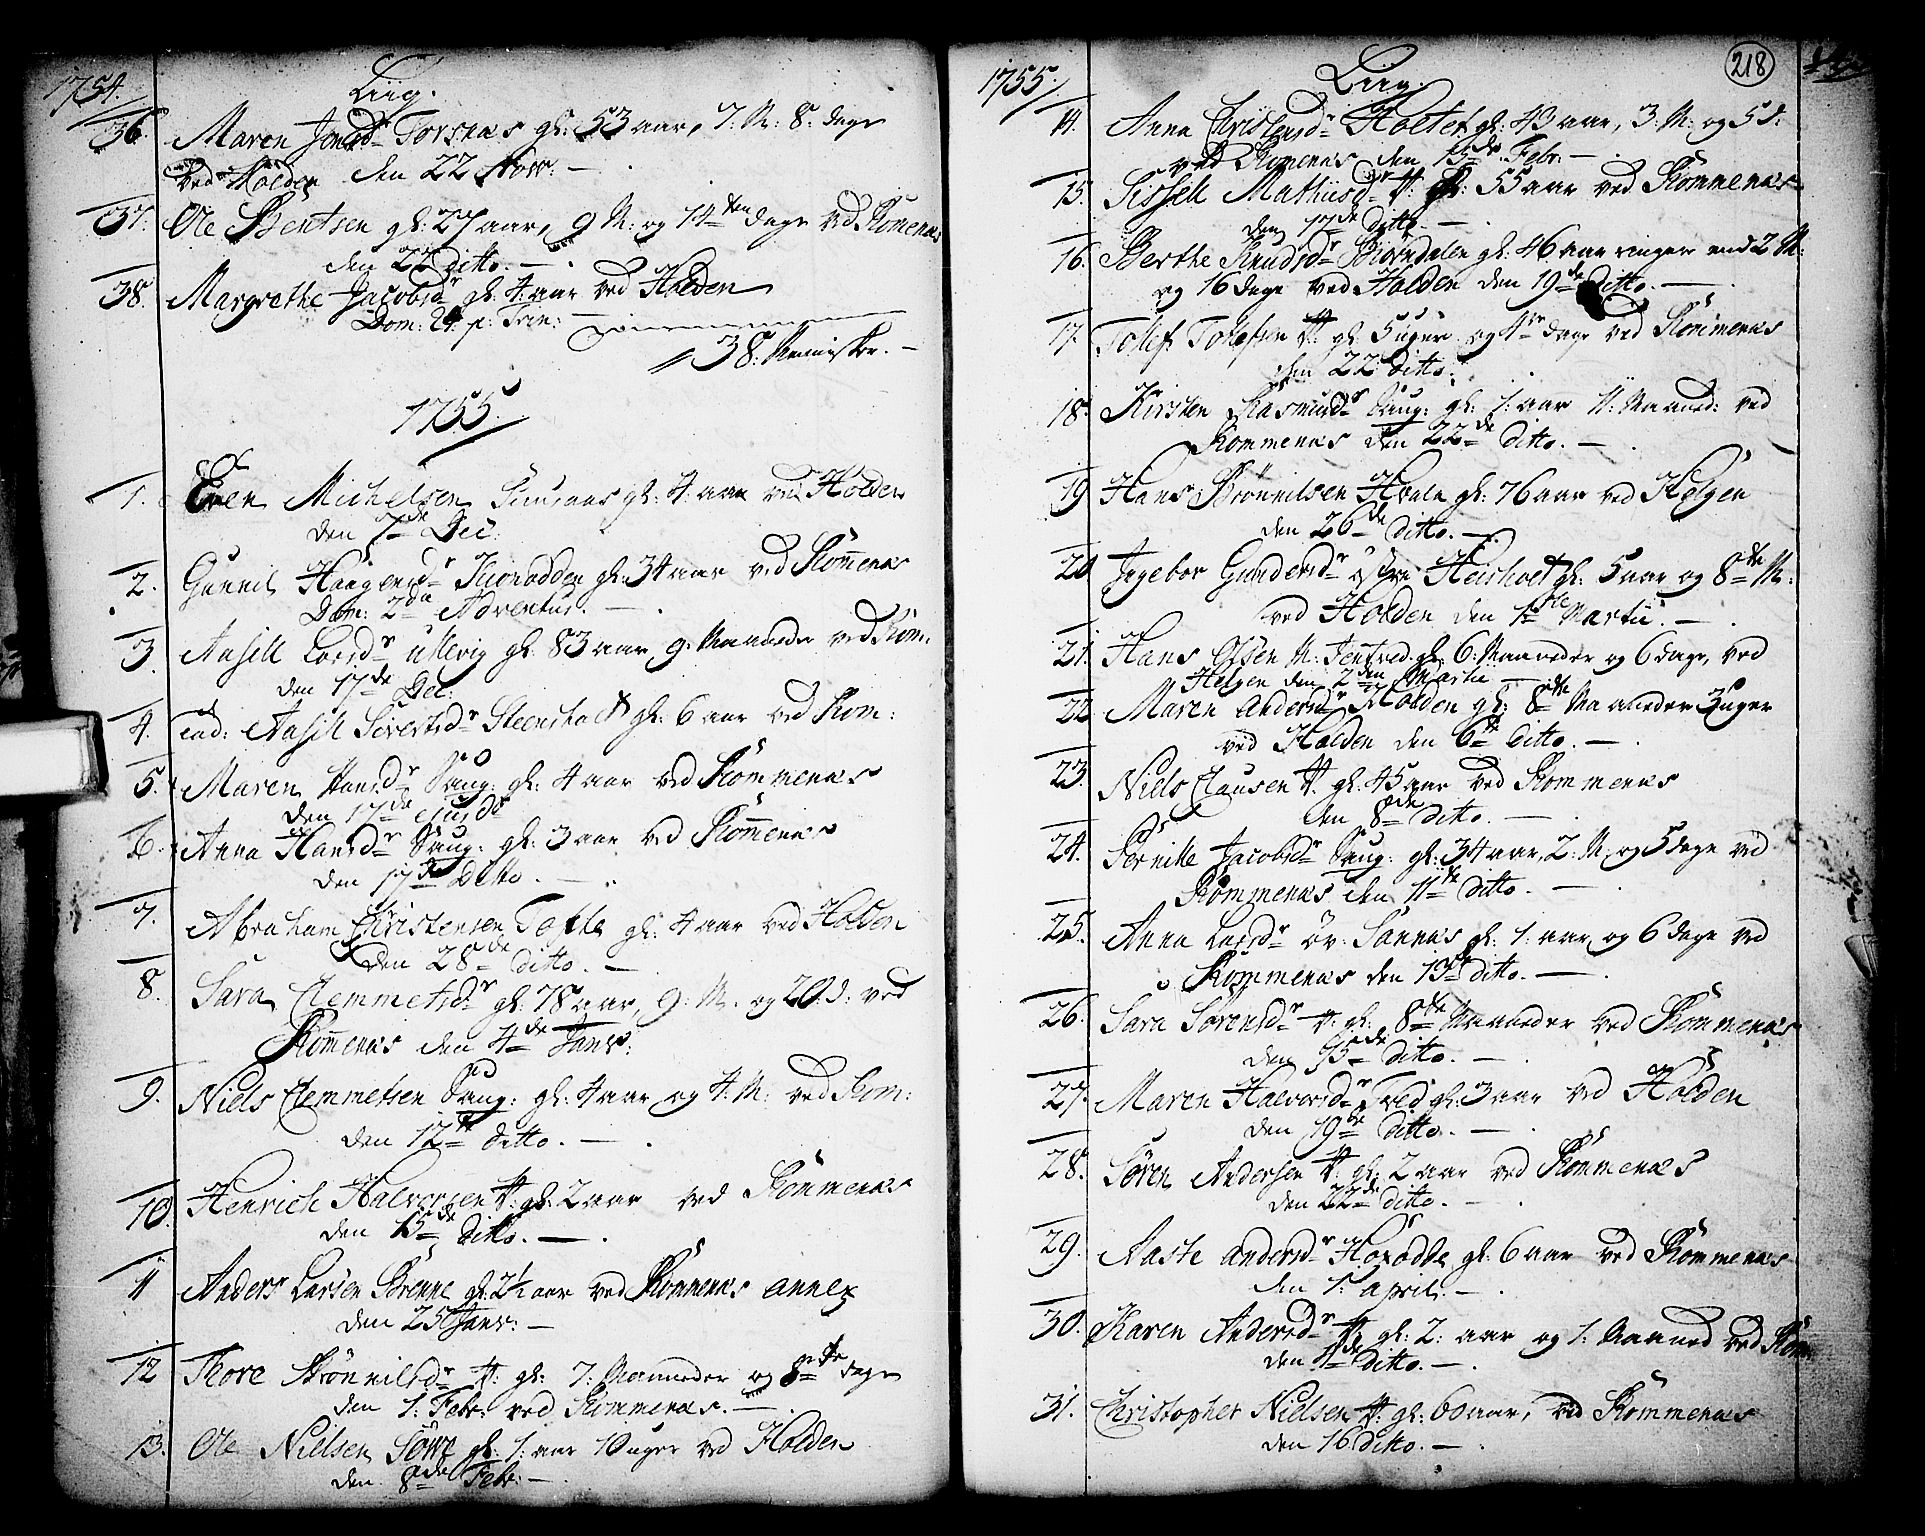 1754.
Liig.
36. Maren Jensdr Torsnæs gl: 53 aar, 7. M: 8. dage
ved Holden den 22 Nov: —
37. Ole Bentsen gl: 27 aar, 9 M: og 14ten dage ved Romenæs
den 22 Ditto. —
38. Margrethe Jacobsdr gl: 4 aar ved Holden
Dom: 24 p: Trin: —
38. Menniske. —
1755.
1. Even Michelsen gl: 4 aar ved Holden
den 7de Dec:
2. Gunnil Haagensdr gl: 34 aar ved Romenæs
Dom: 2da Adventus. —
3. Aasill Larsdr Ullevig gl: 83 aar 9. Maaneder ved Rom:
den 17de Dec:
4. eod: Aasill Sivertsdr Steenstadt gl: 6 aar ved Rom:
5. Maren Hansdr Saug: gl: 4 aar ved Rommenæs
den 17de ejusd:
6. Anna Hansdr Saug: gl: 3 aar ved Romenæs
den 17de Ditto. —
7. Abraham Christensen Tofte gl: 4 aar ved Holden
den 28de ditto. —
8. Sara Clemmetsdr gl: 78 aar, 9. M. og 20. d: ved
Romenæs den 4de Janv:
9. Niels Clemmetsen Saug: gl: 4 aar og 4. M: ved Rom:
den 12te ditto. —
10. Henrich Halvorsen gl: 2 aar ved Rommenæs
den 15de ditto. —
11 Anders Larsen Brenne gl: 2½ aar ved Rommenæs annex
den 25 Janv: —
12 Thore Brønnilsdr gl: 7. Maaneder og 8te dage
den 1. Febr: ved Rommenæs. —
13. Ole Nielsen gl: 1. aar 10 uger ved Holden
den 8de Febr: —
1755.
Liig.
218
14. Anna Christensdr Holtet gl: 43 aar, 3. M: og 5 d:
ved Romenæs den 15de Febr: —
15. Sissell Mathiasdr gl: 55 aar ved Rommenæs
den 17de Ditto. —
16. Berthe Knudsdr Biørndalen gl: 46 aar ringer end 2 M:
og 16 dage ved Holden den 19de Ditto. —
17. Tollef Tollefsen gl: 5 uger og 4re dage ved Rommenæs
den 22 Ditto.
18. Kirsten Rasmusdr Saug: gl: 1. aar 11. Maaned: ved
Rommenæs den 22de Ditto. —
19 Hans Brønnilsen Hvala gl: 76 aar ved Helgen
den 26de ditto. —
20 Ingebor Gundersdr østre Heisholt gl: 5 aar og 8te M:
ved Holden den 1ste Martii. —
21. Hans Olsen gl: 6. Maaneder og 6 dage, ved
Helgen den 2den Martii —
22 Maren Andersdr Holden gl: 8te Maaneder 3 uger
ved Holden den 6te Ditto. —
23. Niels Clausen gl: 45 aar ved Rommenæs
den 8de ditto. —
24. Pernille Jacobsdr Saug: gl: 34 aar, 2. M. og 5 dage ved
Rommenæs den 11te ditto. —
25. Anna Larsdr øv. Sannæs gl: 1. aar og 6 dage ved
Rommenæs den 13de ditto. —
26. Sara Sørensdr gl: 8te Maaneder ved Rommenæs
den 15de ditto. —
27. Maren Halvorsdr gl: 3 aar ved Holden
den 19de ditto. —
28. Søren Andersen gl: 2 aar ved Rommenæs
den 22de ditto. —
29. Aaste Andersdr gl: 6 aar ved Rommenæs
den 1. april. —
30. Karen Andersdr gl: 2. aar og 1. Maaned ved Rom:
den ditto. —
31. Christopher Nielsen gl: 60 aar, ved Rommenæs
den 16 ditto. —